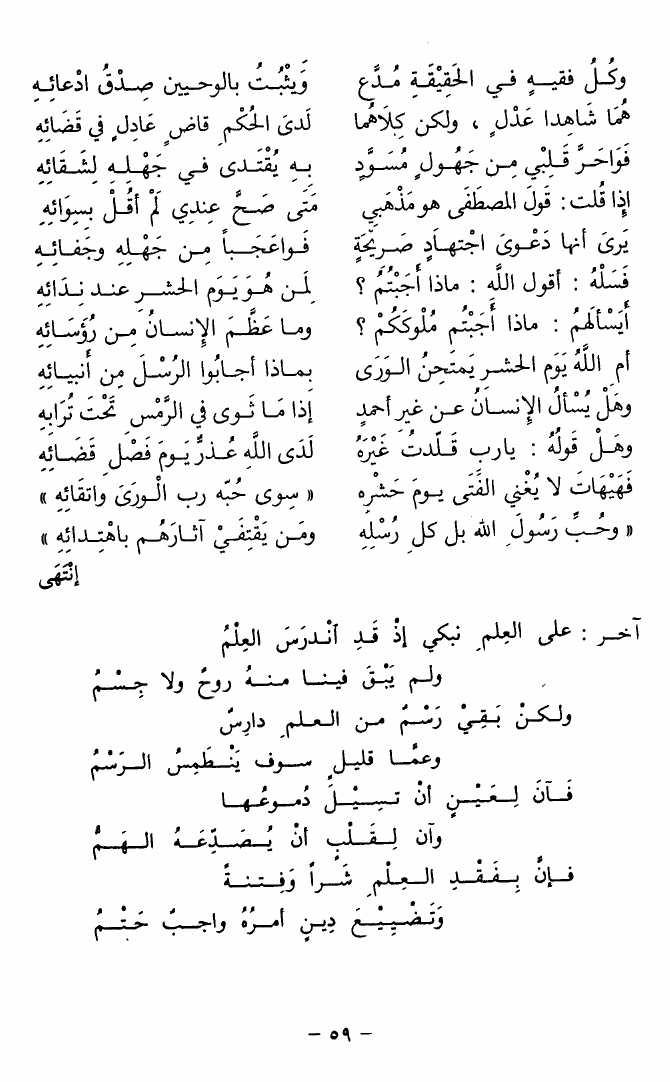 وكُلُّ فقيـهٍ في الحَقِيْقَةِ مُدَّعٍ ويَثْبُتُ بالوحيين صِدْقُ ادْعائِه
هُمَا شاهدا عَدْلٍ ، ولكن كِلَاهُما لَدَىَ الحُكْمِ قاضٍ عَادِلٍ في قَضَائِهِ
فَوَاحَرَّ قَلْبي مِن جَهُولٍ مُسَوَّدٍ بِهِ يُقْتَدى في جَهْلِهِ لِشَقَائِهِ
إذا قُلت : قَولُ المصطَفَى هو مَذْهَبي مَتَى صَحَّ عندي لَمْ أقُلْ بِسِوَائِهِ
يَرَى أنها دَعْوىَ اجتهادٍ صَريحَةٍ فواعَجَباً مِن جَهْلِهِ وجَفَائِهِ
فَسَلْهُ : أقول اللَّه : ماذا أجَبْتُمُ ؟ لِمن هُوَ يَوْمَ الحشرِ عند نِدَائِهِ
أيَسْألُهُمْ : ماذا أَجَبْتُم مُلُوككُمْ ؟ وما عَظَّمَ الإِنسانُ مِن رُؤَسَائِهِ
أم اللَّهُ يَوْمَ الحشرِ يَمتَحِنُ الوَرَى بماذا أجابُوا الرُّسْلَ مِن أنبيائِهِ
وهَلْ يُسْألُ الإِنسانُ عن غير أحمدٍ إذا مَا ثَوىَ في الرَّمْسِ تَحْتَ تُرَابِهِ
وهَلْ قولُهُ : يارب قَلَّدتُ غَيْرَهُ لَدَى اللَّه عُذرٌ يَومَ فَصْلِ قَضَائِهِ
فَهَيْهَاتَ لا يُغْني الفَتَى يومَ حَشْرِهِ « سِوى حُبِّه رب الوَرىَ واتقَائِهِ »
« وحُبِّ رَسُولِ الله بل كلِ رُسْلِهِ ومَن يَقْتَفِيْ آثارَهُم باهْتِدائِهِ »
إنْتَهَى
آخر : على العِلمِ نبكي إذْ قَدِ اَنْدرَسَ العِلْمُ
ولم يَبْقَ فينا منهُ روحٌ ولا جِسْمُ
ولكنْ بَقِيْ رَسْمٌ من العلمِ دارِسٌ
وعمَّا قليلٍ سوف يَنْطَمِسُ الرَسْمُ
فَآنَ لِعَيْنٍ أنْ تسِيْلَ دُموعُها
وآن لِقَلْبٍ أنْ يُصَدِّعَهُ الهَمُّ
فإنَّ بِفَقْدِ العِلْمِ شَراً وَفِتنةً
وَتَضْيِيْعَ دِينٍ أمرُهُ واجبٌ حَتْمُ
– ٥٩ –